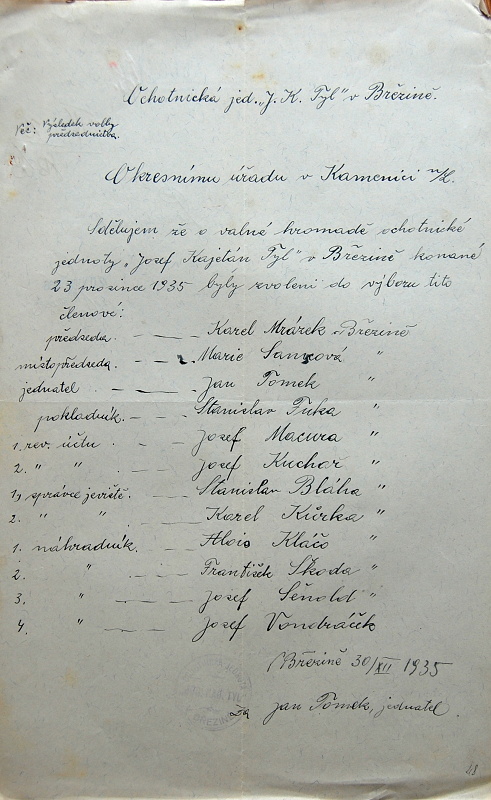 Ochotnická jed. „J. K. Tyl" v Březině.
Věc: Výsledek volby
předsednictva.
Okresnímu úřadu v Kamenici n/L.
Sdělujem že o valné hromadě ochotnické
jednoty „Josef Kajetán Tyl" v Březině konané
23 prosince 1935 byly zvoleni do výboru tito
členové:
předseda. — — — Karel Mrázek - Březině
místopředseda. — — — Marie "
jednatel . — — — Jan Tomek "
pokladník. — — — Stanislav Tuka "
1. rev. účtu . — — — Josef Macura "
2. " " — — — Josef Kuchař "
1, správce jeviště. — — — Stanislav Bláha "
2. " " — — — Karel Kůrka "
1. náhradník. — — — Alois Kláčo "
2. " — — — František Škoda "
3. " — — — Josef "
4. " — — — Josef Vondráček
Březině 30/XII 1935
Za Jan Tomek, jednatel.
48